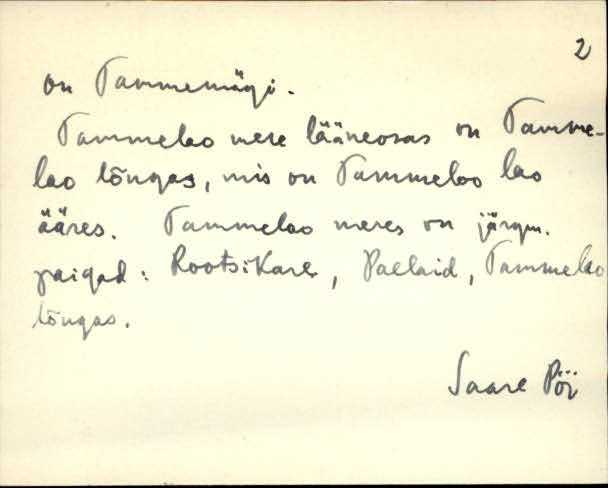 2
on Tammemägi.
Tammelao mere lääneosas on Tamme-
lao lõugas, mis on Tammeloo lao
ääres. Tammelao meres on järgm.
paigad: Rootsi Kare, Paelaid, Tammelao
lõugas.
Saare Pöi